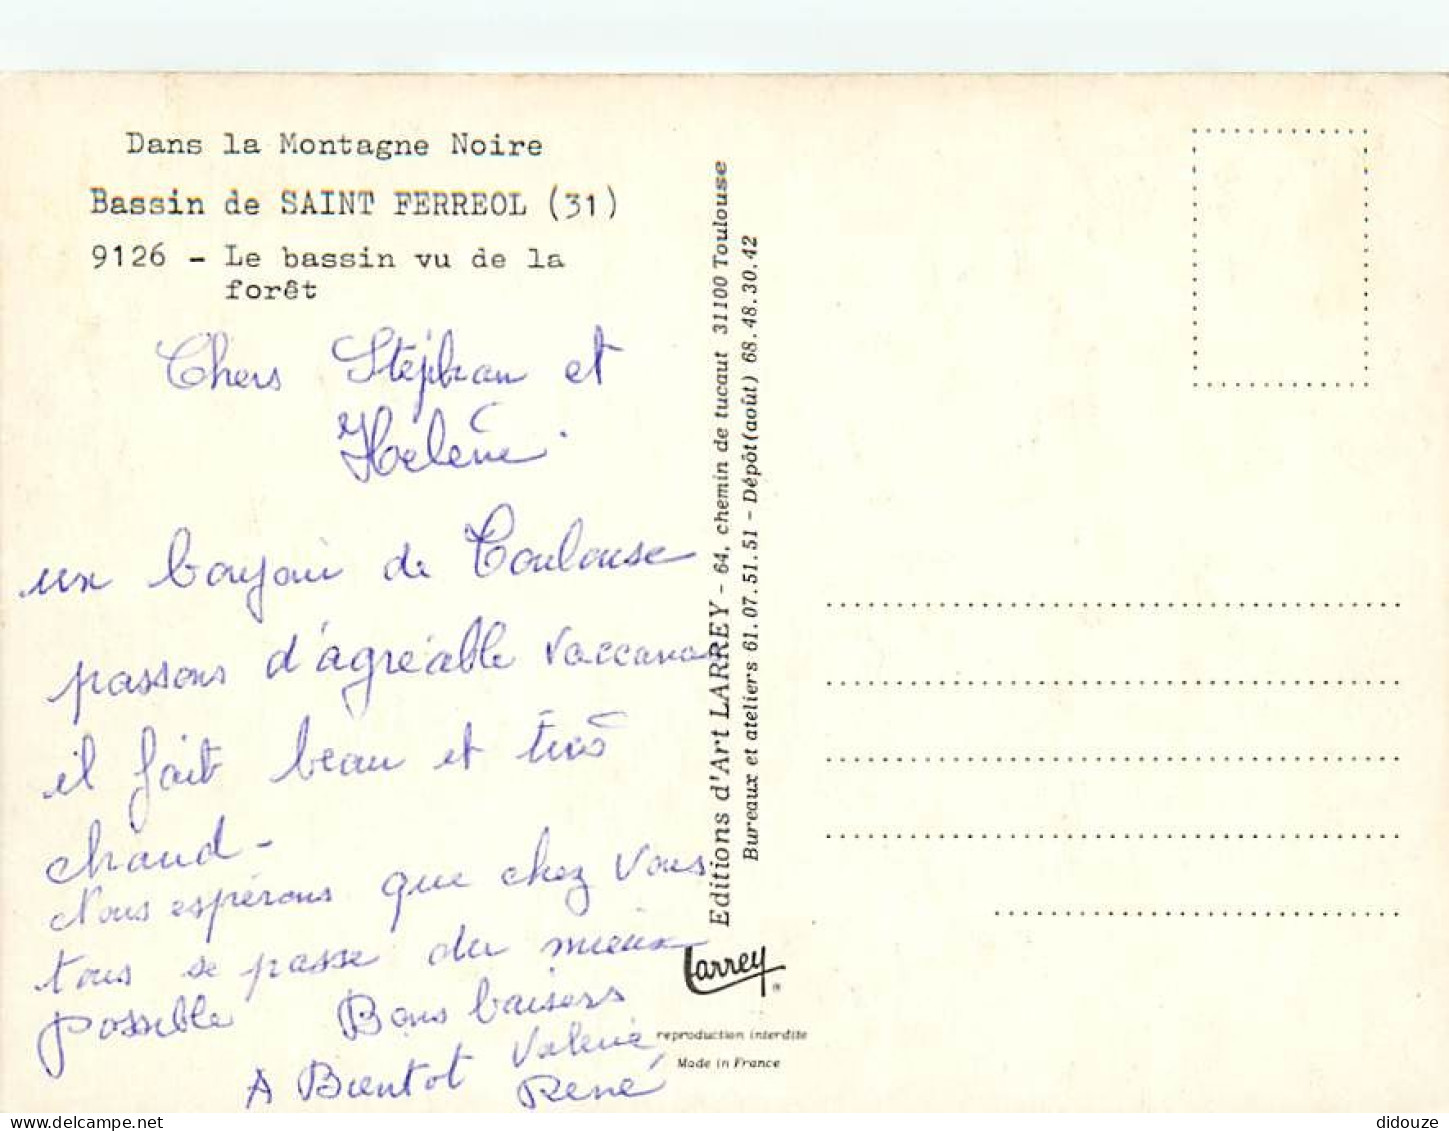 Dans la Montagne Noire
Bassin de SAINT FERREOL (31)
9126 - Le bassin vu de la
forêt
Chers Stéphan et
Hélène
un bonjour de Toulouse
passons d'agréable vaccances
il fait beau et très
chaud -
Nous espérons que chez vous
tous se passe du mieux
possible Bons baisers
A Bientot Valerie,
René
Editions d'Art LARREY - 64, chemin de tucaut 31100 Toulouse
Bureaux et ateliers 61.07.51.51 - Dépôt(août) 68.48.30.42
Larrey ®
reproduction interdite
Made in France
delcampe.net
didouze